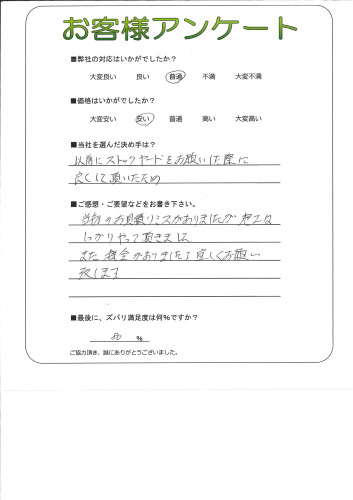 お客様アンケート
■弊社の対応はいかがでしたか?
大変良い 良い 普通 不満 大変不満
■価格はいかがでしたか?
大変安い 安い 普通 高い 大変高い
■当社を選んだ決め手は?
以前にストックヤードをお願いした際に
良くして頂いたため
■ご感想・ご要望などをお書き下さい。
当初のお見積りミスがありましたが 施工は
しっかりやって頂きました
また機会がありましたら宜しくお願い
致します
■最後に、ズバリ満足度は何%ですか?
80 %
ご協力頂き、誠にありがとうございました。